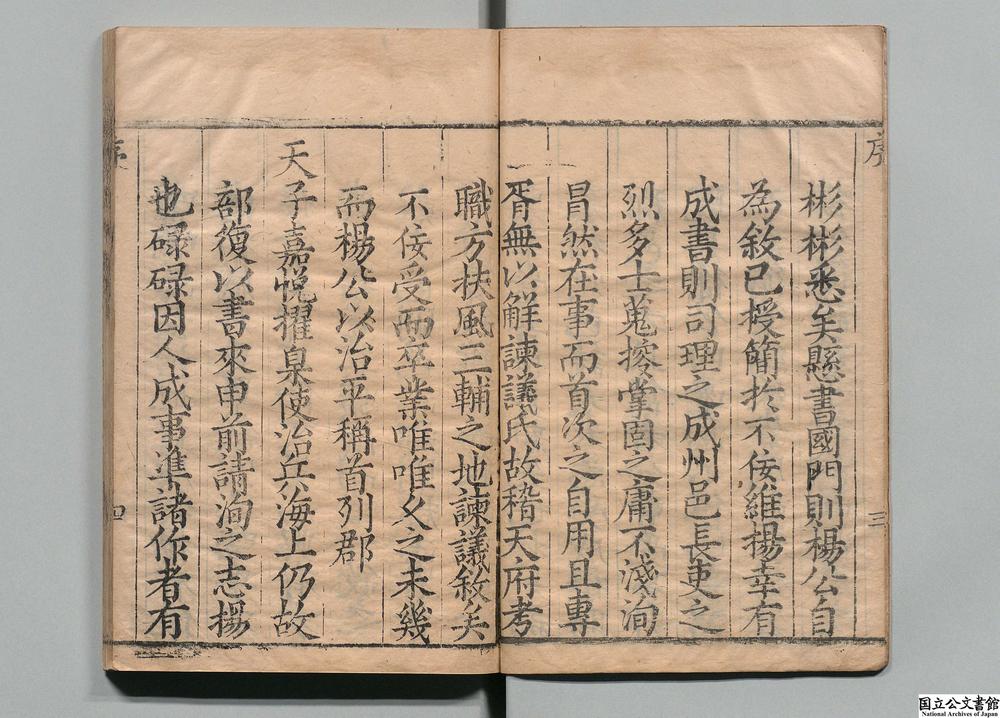 序
三
彬彬悉矣懸書國門則楊公自
為敘已授簡扵不佞維揚幸有
成書則司理之成州邑長吏之
烈多士蒐㩁堂固之庸不淺洵
冐然在事而首次之自用且專
胥無以解諫議氏故稽天府考
職方扶風三輔之地諫議敘矣
不佞受而卒業唯唯久之未幾
而楊公以治平稱首列郡
天子嘉悅擢臬使治兵海上仍故
部復以書來申前請洵之志揚
也碌碌因人成事準諸作者有
序
四
国立公文書館
National Archives of Japan